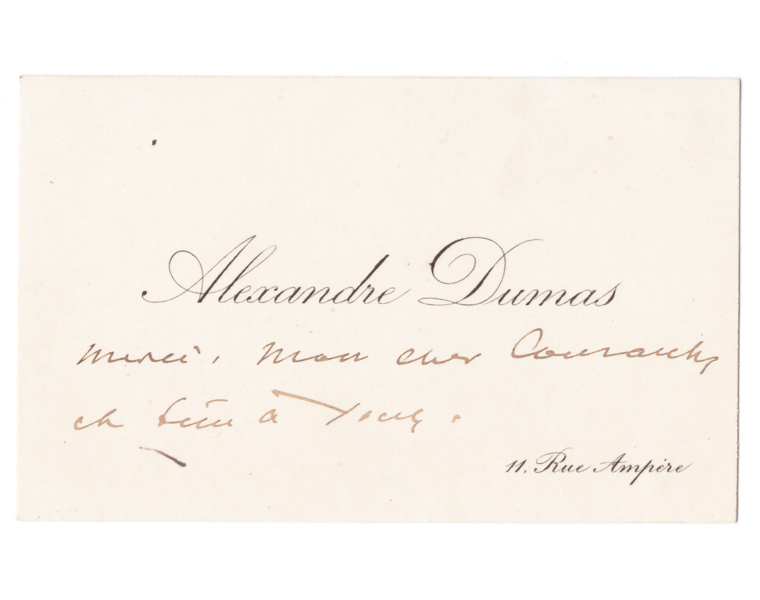 Alexandre Dumas
Merci, mon cher
et bien à vous.
11. Rue Ampère